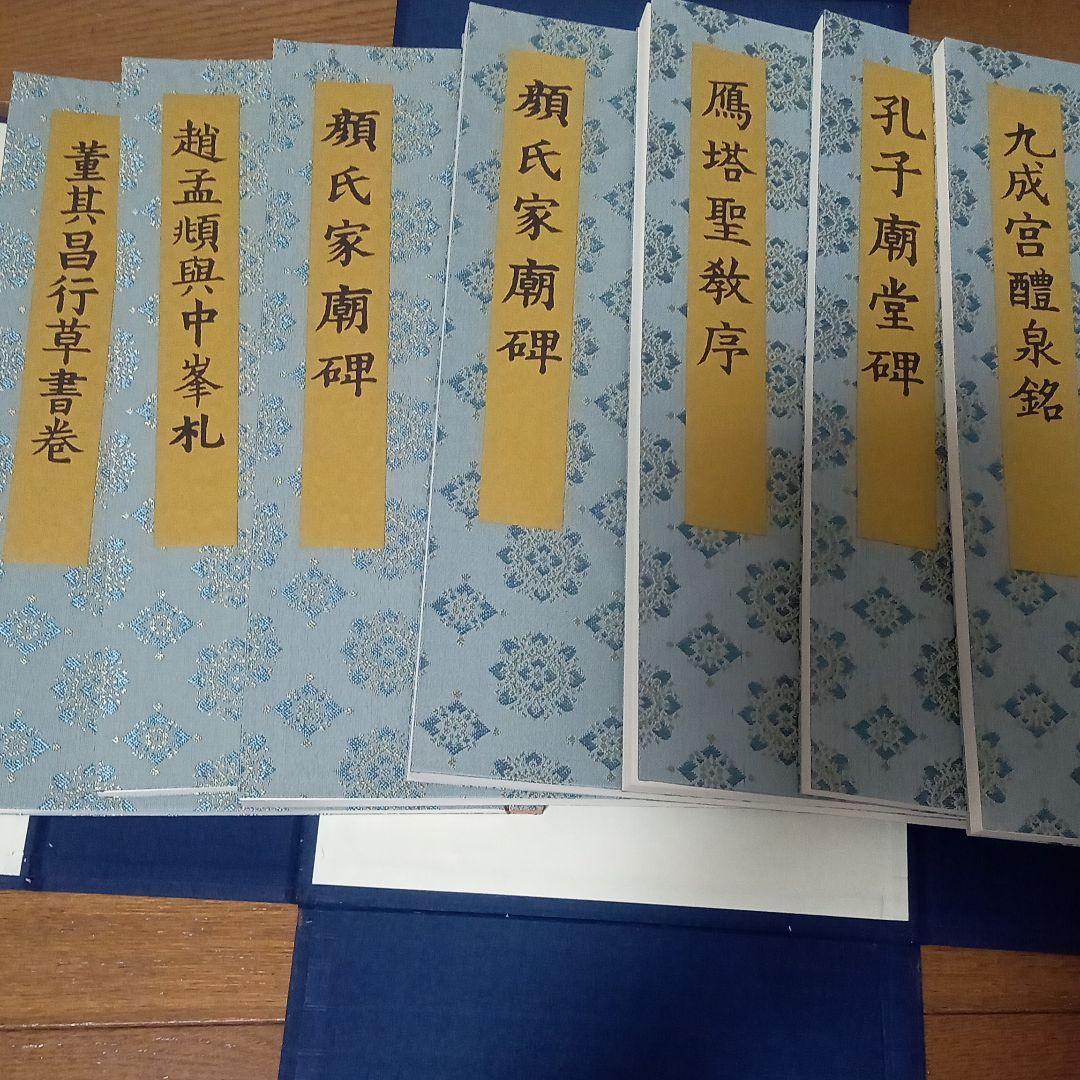 九成宮醴泉銘
孔子廟堂碑
鴈塔聖教序
顔氏家廟碑
顔氏家廟碑
趙孟頫與中峯札
董其昌行草書巻